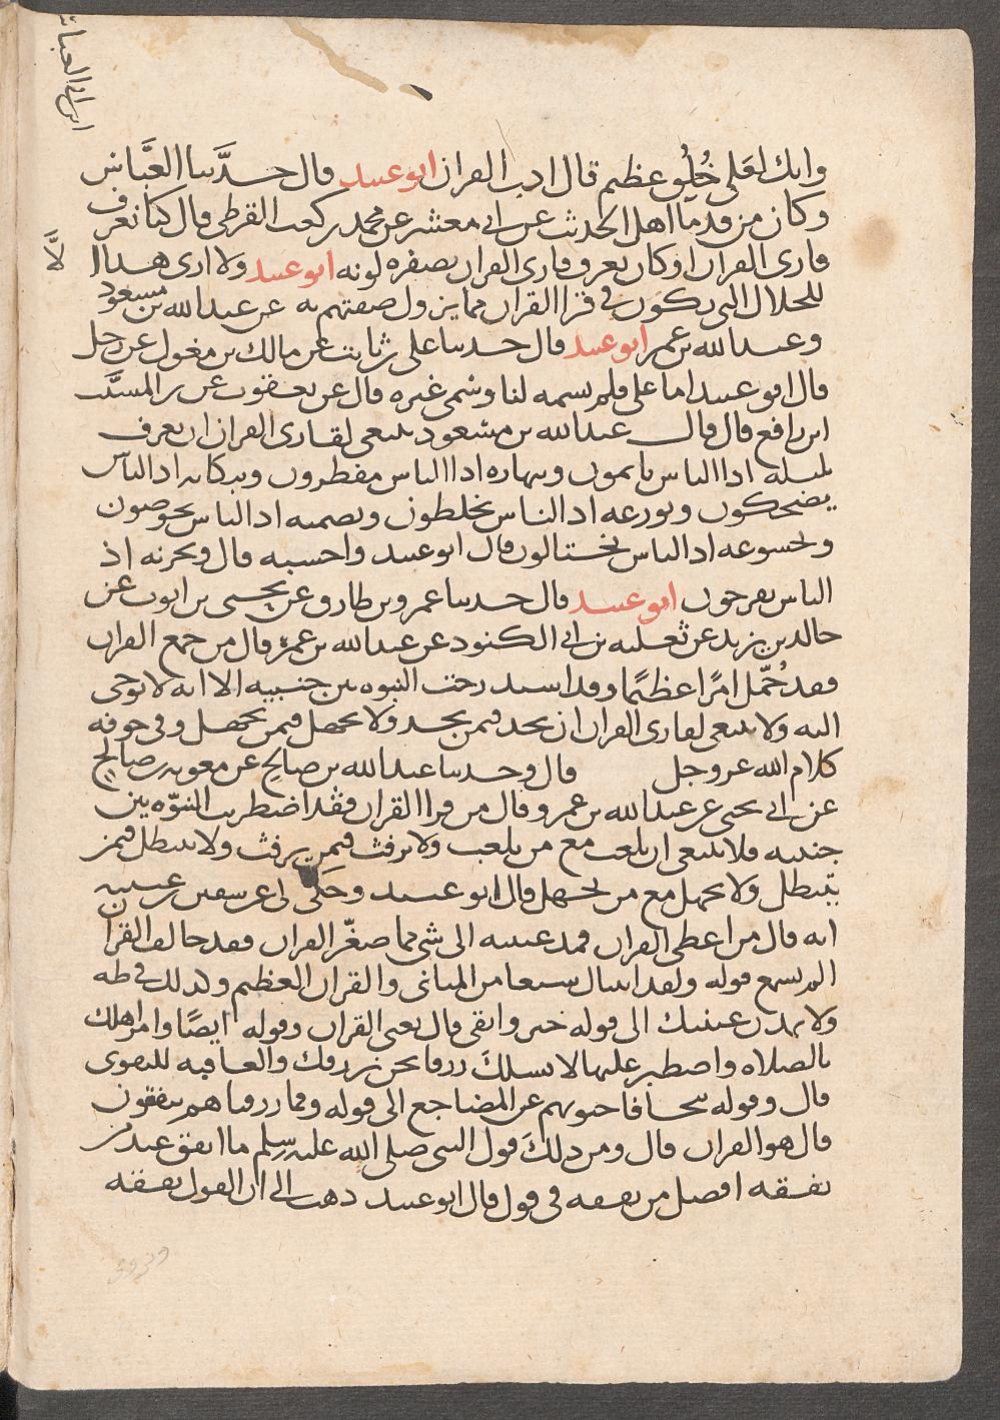 وانك لعلى خُلُق عظيم قال ادب القران ابو عبيد قال حدَّثنا العَبَّاس
وكان من قدما اهل الحديث عن ابي معشر عن محمد بن كعب القرظي قال كنا نعرف
قارى القران او كان يعرف قارى القران بصفره لونه ابو عبيد ولا ارى هذا ا
لَّا
للخلال التى تكون في قرا القران مما يزول صفتهم به عن عبد الله بن مسعود
وعبد الله بن عمر ابو عبيد قال حدثنا على بن ثابت عن مالك بن مغول عن رجل
قال ابو عبيد اما على فلم يسمه لنا وسمى غيره قال عن يعقوب عن المسيَّب
ابن رافع قال قال عبد الله بن مسعود ينبغى لقارى القران ان يعرف
بليله اذا الناس نايمون وبنهاره اذا الناس مفطرون وببكايه اذ الناس
يضحكون وبورعه اذ الناس يخلطون وبصمته اذ الناس يخوضون
وبخشوعه اذ الناس يختالون قال ابو عبيد واحسبه قال وبحزنه اذ
الناس يفرحون ابو عبيد قال حدثنا عمرو بن طارق عن يحيى بن ايوب عن
خالد بن يزيد عن ثعلبه بن ابي الكنود عن عبد الله بن عمرو قال من جمع القران
فقد حُمّل امرًا عظيمًا وقد استدرجت النبوه بين جنبيه الا انه لا يوحى
اليه ولا ينبغى لقارى القران ان يحد فيمن يحد ولا يجهل فيمن يجهل وفي جوفه
كلام الله عز وجل قال وحدثنا عبد الله بن صالح عن معويه بن صالح
عن ابي يحيى عن عبد الله بن عمرو قال من قرا القران فقد اضطربت النبوّه بين
جنبيه فلا ينبغى ان يلعب مع من يلعب ولا يرفث فيمن يرفث ولا يتبطل فيمن
يتبطل ولا يجهل مع من يجهل قال ابو عبيد وحكى لى عن سفين بن عيينه
انه قال من اعطى القران فمد عينيه الى شى مما صغّر القران فقد خالف القران
الم تسمع قوله ولقد اتيناك سبعا من المثانى والقران العظيم وكذلك في طه
ولا تمدن عينيك الى قوله خير وابقى قال يعنى القران وقوله ايضًا وامر اهلك
بالصلاه واصطبر عليها لا نسلكَ رزقا نحن نرزقك والعاقبه للتقوى
قال وقوله تتجافا جنوبهم عن المضاجع الى قوله ومما رزقناهم ينفقون
قال هو القران قال ومن ذلكَ قول النبى صلى الله عليه وسلم ما انفق عبد من
نفقه افضل من نفقه في قول قال ابو عبيد ذهب الى ان القول نفقه